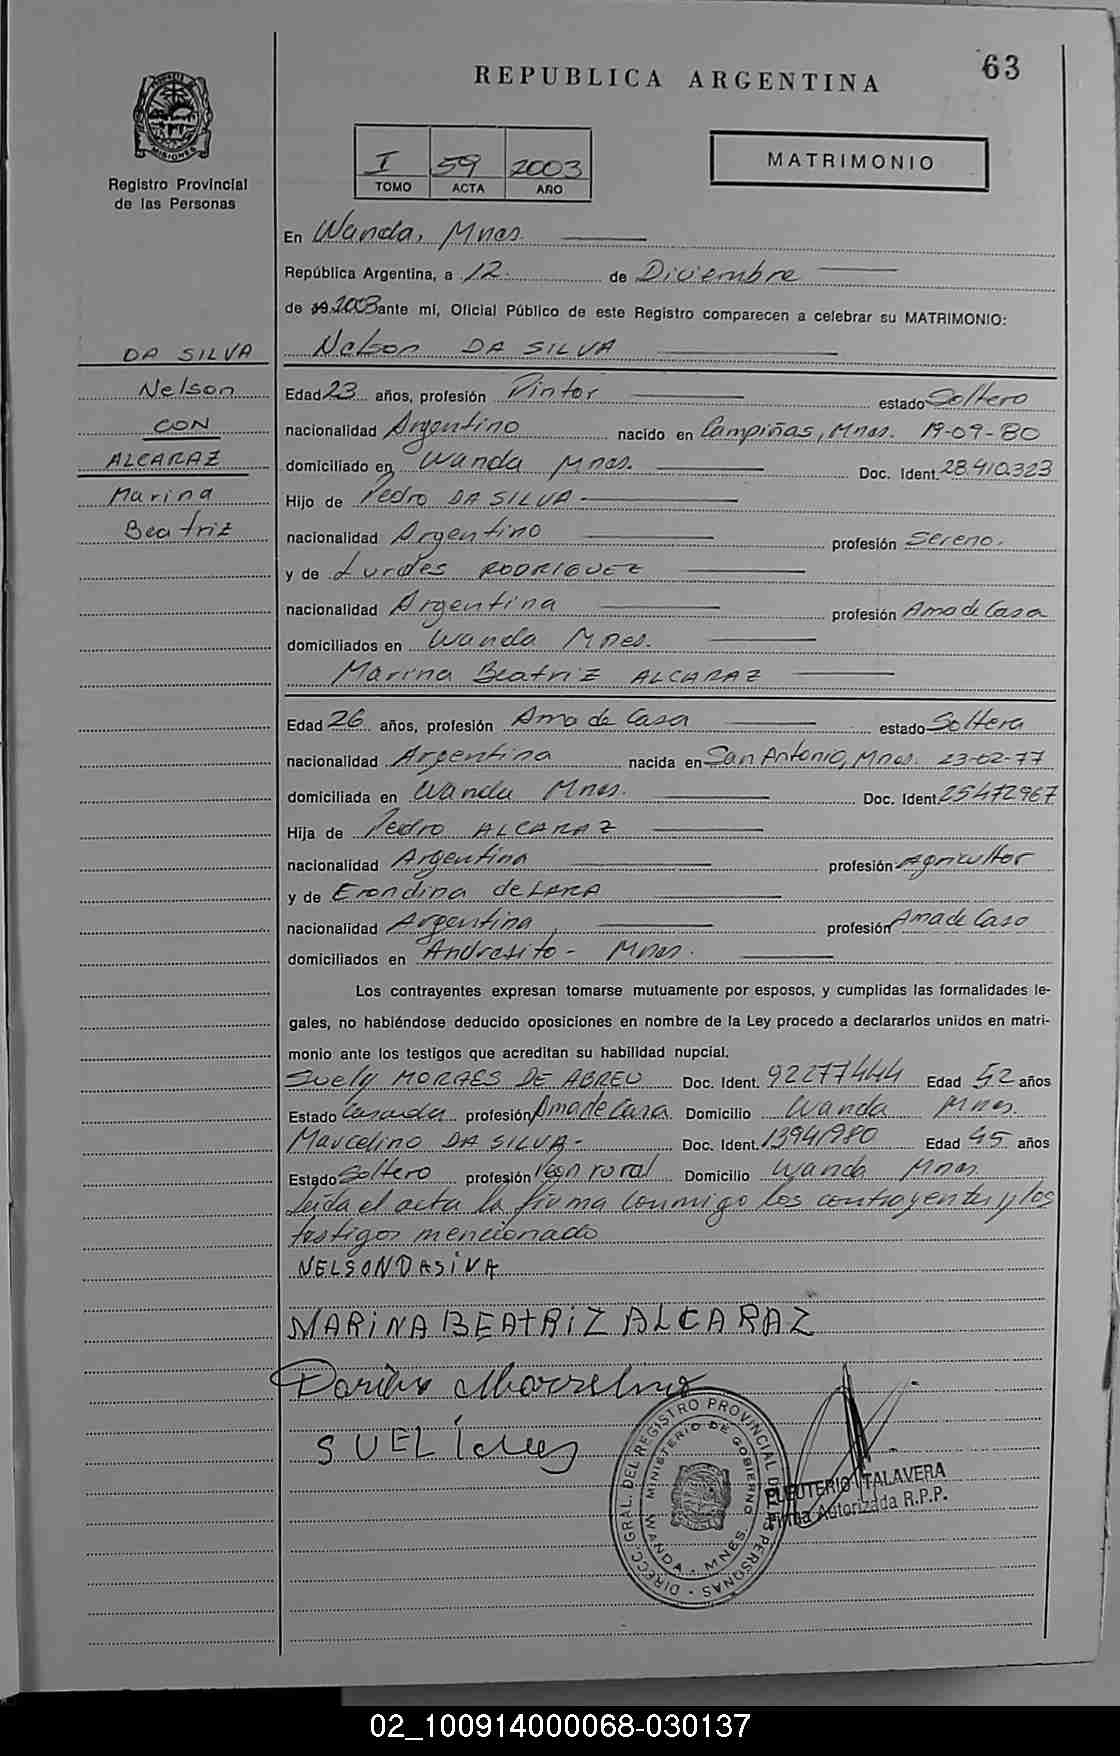 63
REPUBLICA ARGENTINA
MISIONES
Registro Provincial
de las Personas
I 59 2003
TOMO ACTA AÑO
MATRIMONIO
En Wanda, Mnes.
República Argentina, a 12. de Diciembre
de 19 2003 ante mí, Oficial Público de este Registro comparecen a celebrar su MATRIMONIO:
DA SILVA
Nelson
CON
ALCARAZ
Marina
Beatriz
Nelson DA SILVA
Edad 23 años, profesión Pintor estado Soltero
nacionalidad Argentino nacido en Campiñas, Mnes. 19-09-80
domiciliado en Wanda Mnes. Doc. Ident. 28.410.323
Hijo de Pedro DA SILVA
nacionalidad Argentino profesión Sereno.
y de Lurdes RODRIGUEZ
nacionalidad Argentina profesión Ama de Casa
domiciliados en Wanda Mnes.
Marina Beatriz ALCARAZ
Edad 26 años, profesión Ama de Casa estado Soltera
nacionalidad Argentina nacida en San Antonio, Mnes. 23-02-77
domiciliada en Wanda Mnes. Doc. Ident. 25472967
Hija de Pedro ALCARAZ
nacionalidad Argentina profesión Agricultor
y de Erondina de LARA
nacionalidad Argentina profesión Ama de Casa
domiciliados en Andresito - Mnes.
Los contrayentes expresan tomarse mutuamente por esposos, y cumplidas las formalidades le-
gales, no habiéndose deducido oposiciones en nombre de la Ley procedo a declararlos unidos en matri-
monio ante los testigos que acreditan su habilidad nupcial.
Suely MORAES DE ABREU Doc. Ident. 92277444 Edad 52 años
Estado Casada profesión Ama de Casa Domicilio Wanda Mnes.
Marcelino DA SILVA- Doc. Ident. 13941980 Edad 45 años
Estado Soltero profesión Peón rural Domicilio Wanda Mnes.
Leida el acta la firma conmigo los contrayentes y los
testigos mencionado
NELSON DASiVA
MARiNA BEAtRiZ ALCARAZ
SUELI
DIRECC. GRAL. DEL REGISTRO PROVINCIAL DE LAS PERSONAS
MINISTERIO DE GOBIERNO
WANDA - MNES.
ELEUTERIO TALAVERA
Firma Autorizada R.P.P.
02_100914000068-030137